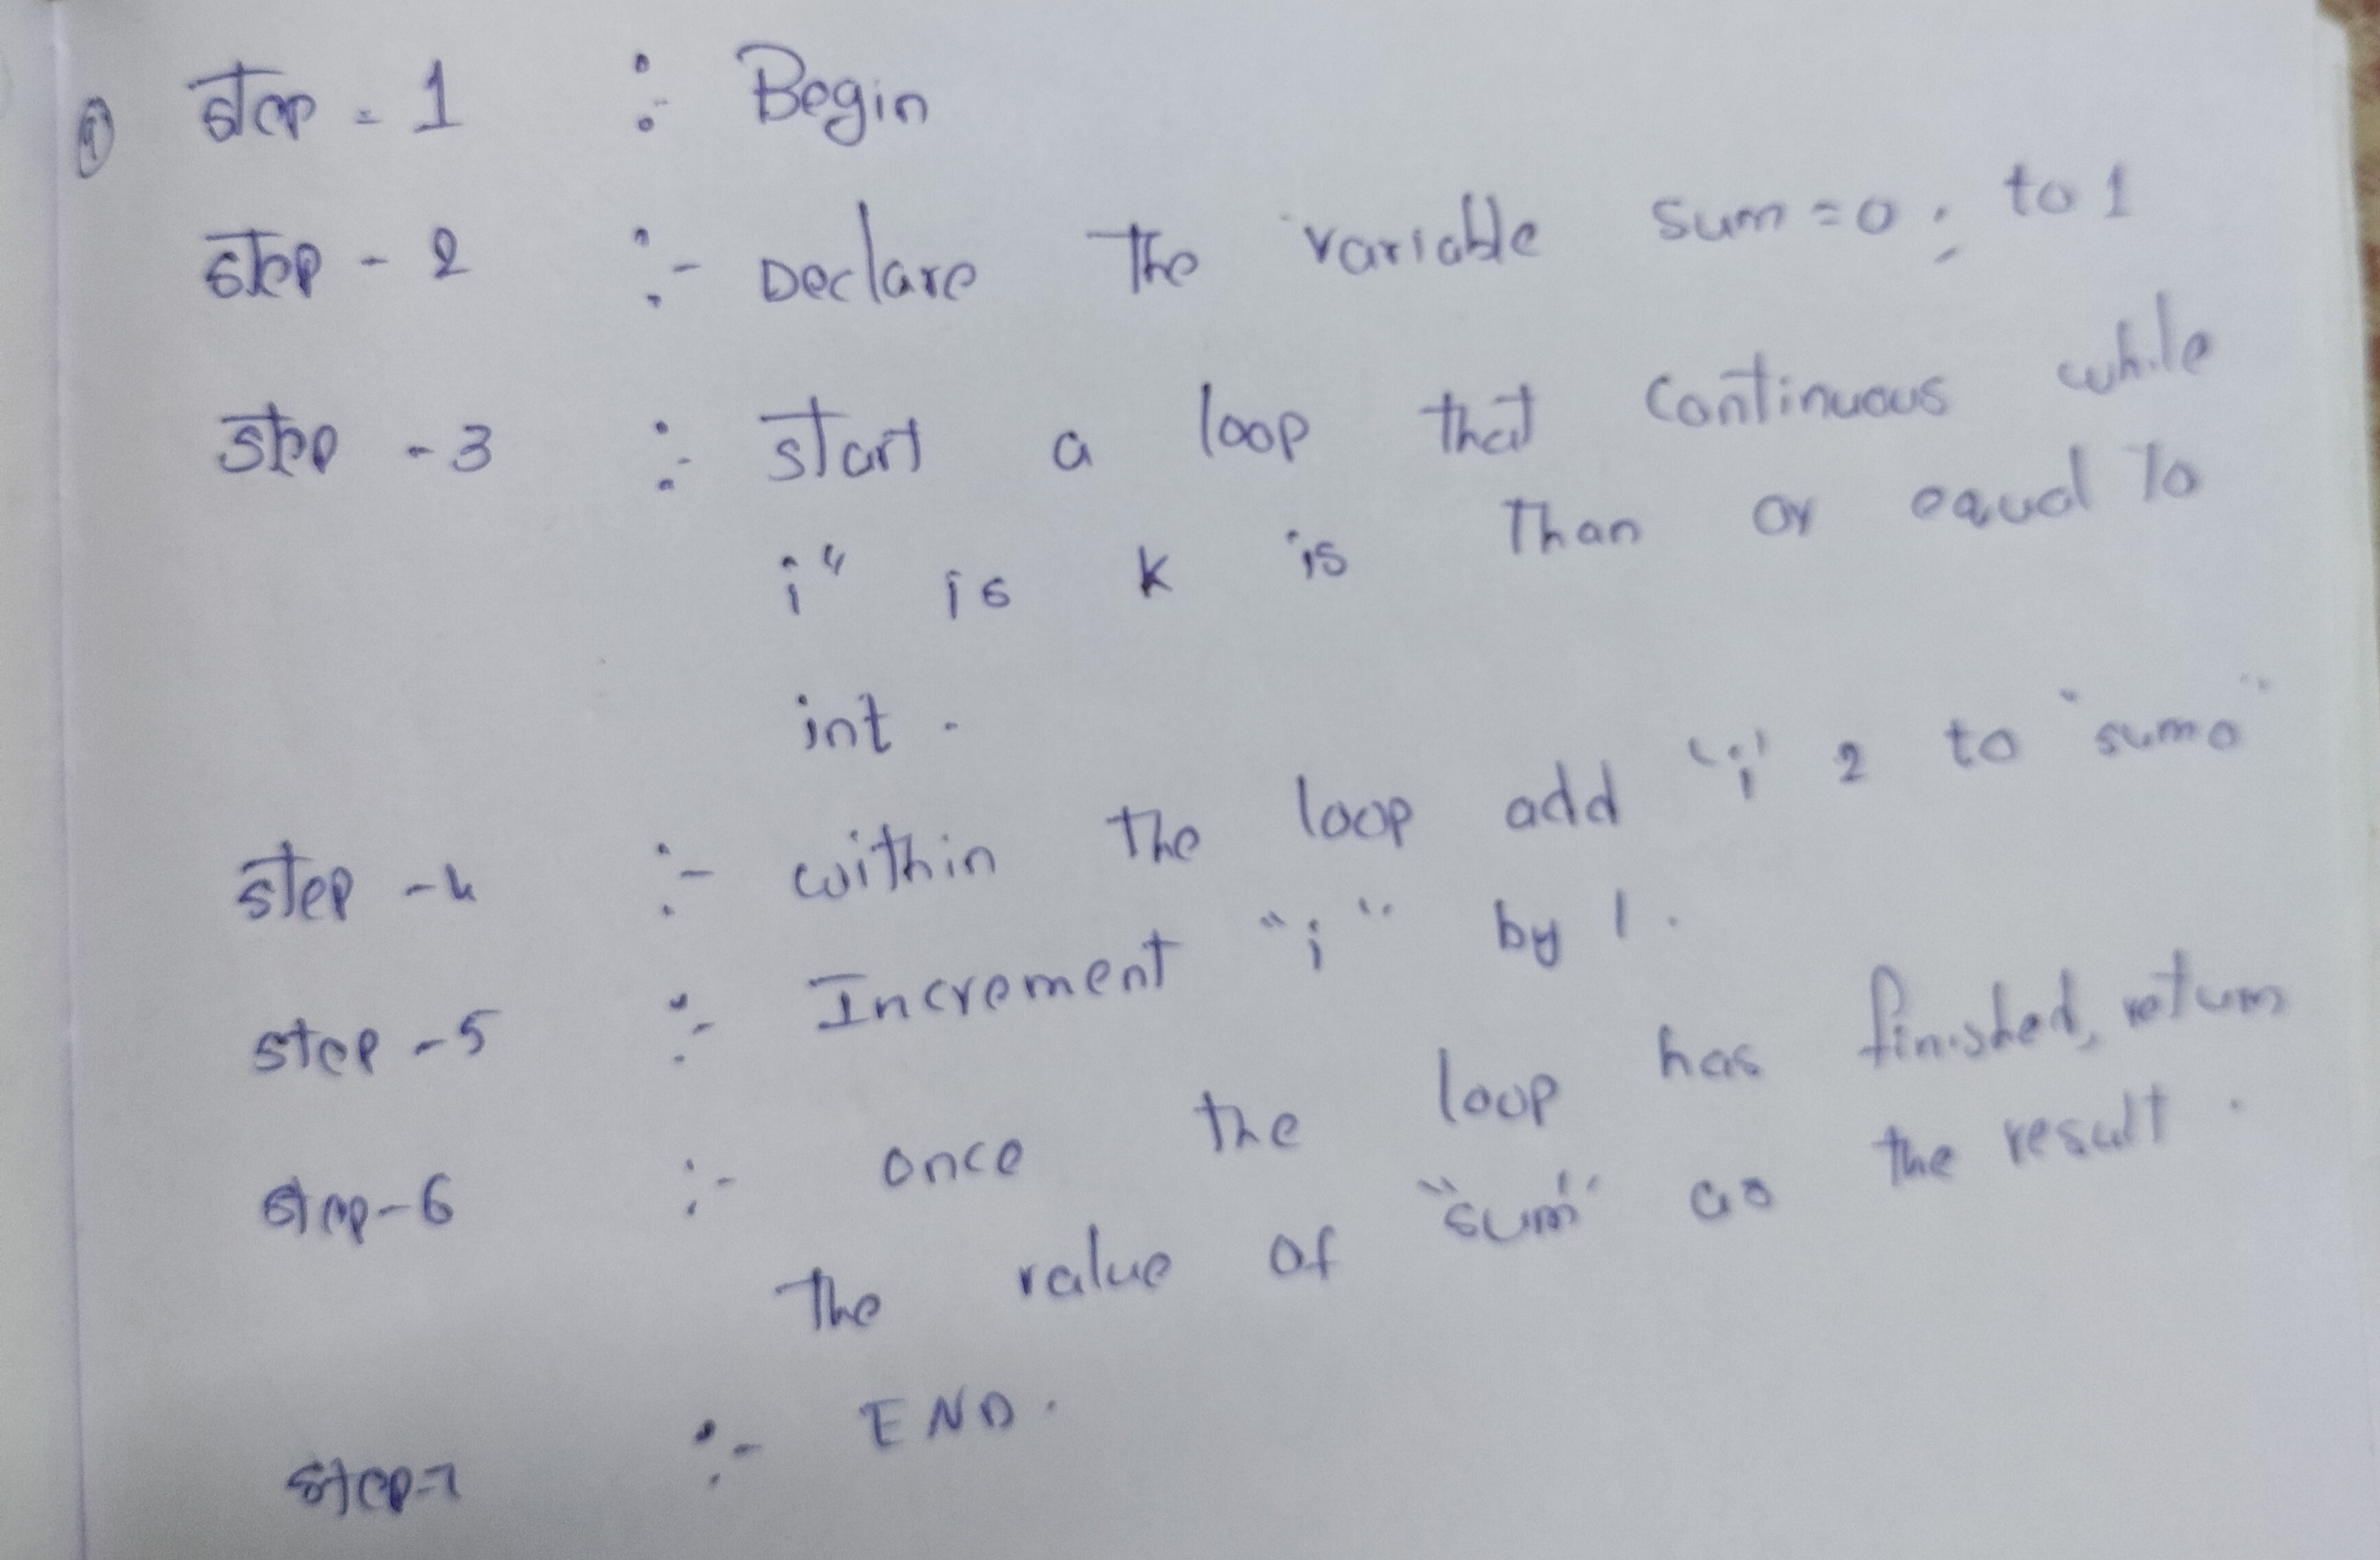 ① step - 1 :- Begin
step - 2 :- Declare the variable sum = 0 ; to 1
step - 3 :- start a loop that continuous while
i" is k is than or equal to
int .
step - 4 :- within the loop add 'i' 2 to "sumo"
step - 5 :- Increment "i" by 1 .
step - 6 :- once the loop has finished, return
the value of "sum" as the result .
step - 7 :- END .